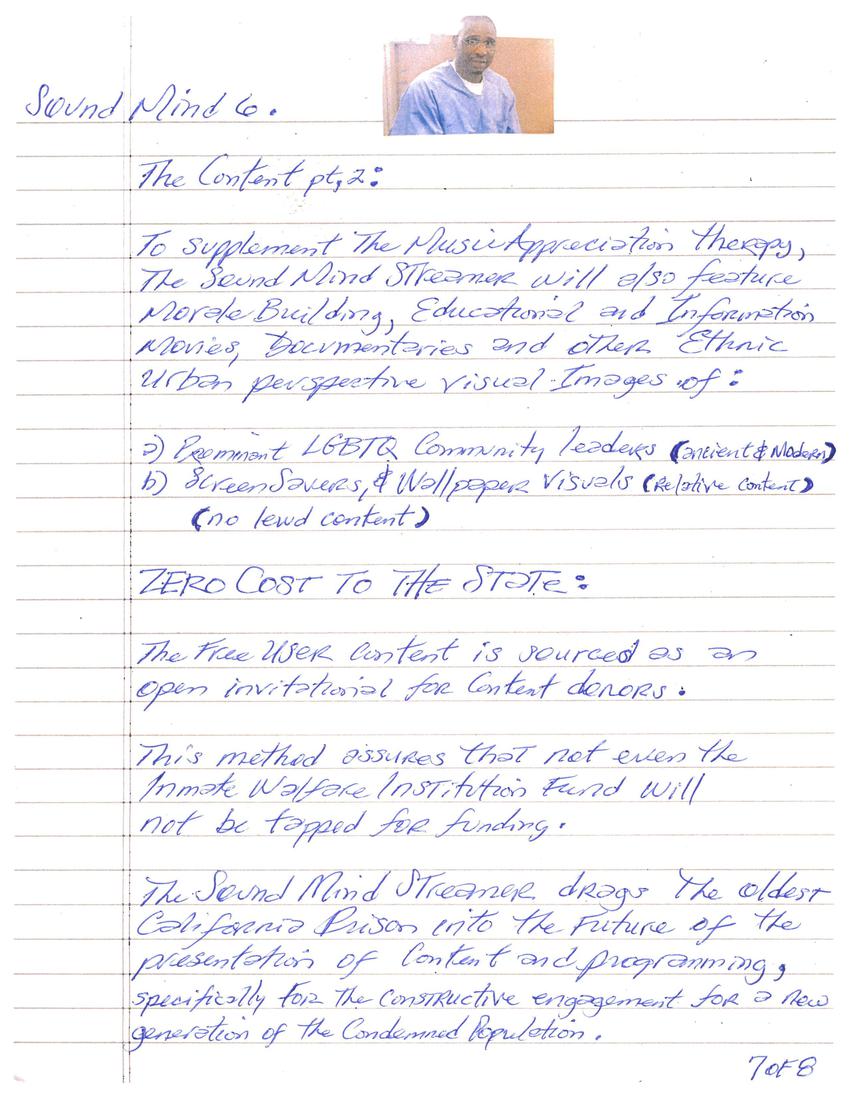 Sound Mind 6.
The Content pt,2:
To supplement The Music Appreciation therapy,
The Sound Mind STreamer will also feature
Morale Building, Educational and Information
Movies, Documentaries and other Ethnic
Urban perspective visual Images of:
a) Prominant LGBTQ Community leaders (ancient & Modern)
b) ScreenSavers, & Wallpaper visuals (Relative Content)
(no lewd content)
ZERO COST TO THE STaTe:
The Free User Content is sourced as an
open invitational for Content donors.
This method assures that not even the
Inmate Walfare InsTiTution Fund will
not be tapped for funding.
The Sound Mind STreamer drags The oldest
California Prison into the Future of the
presentation of Content and programming,
specifically for the constructive engagement for a new
generation of the Condemned Population.
7 of 8